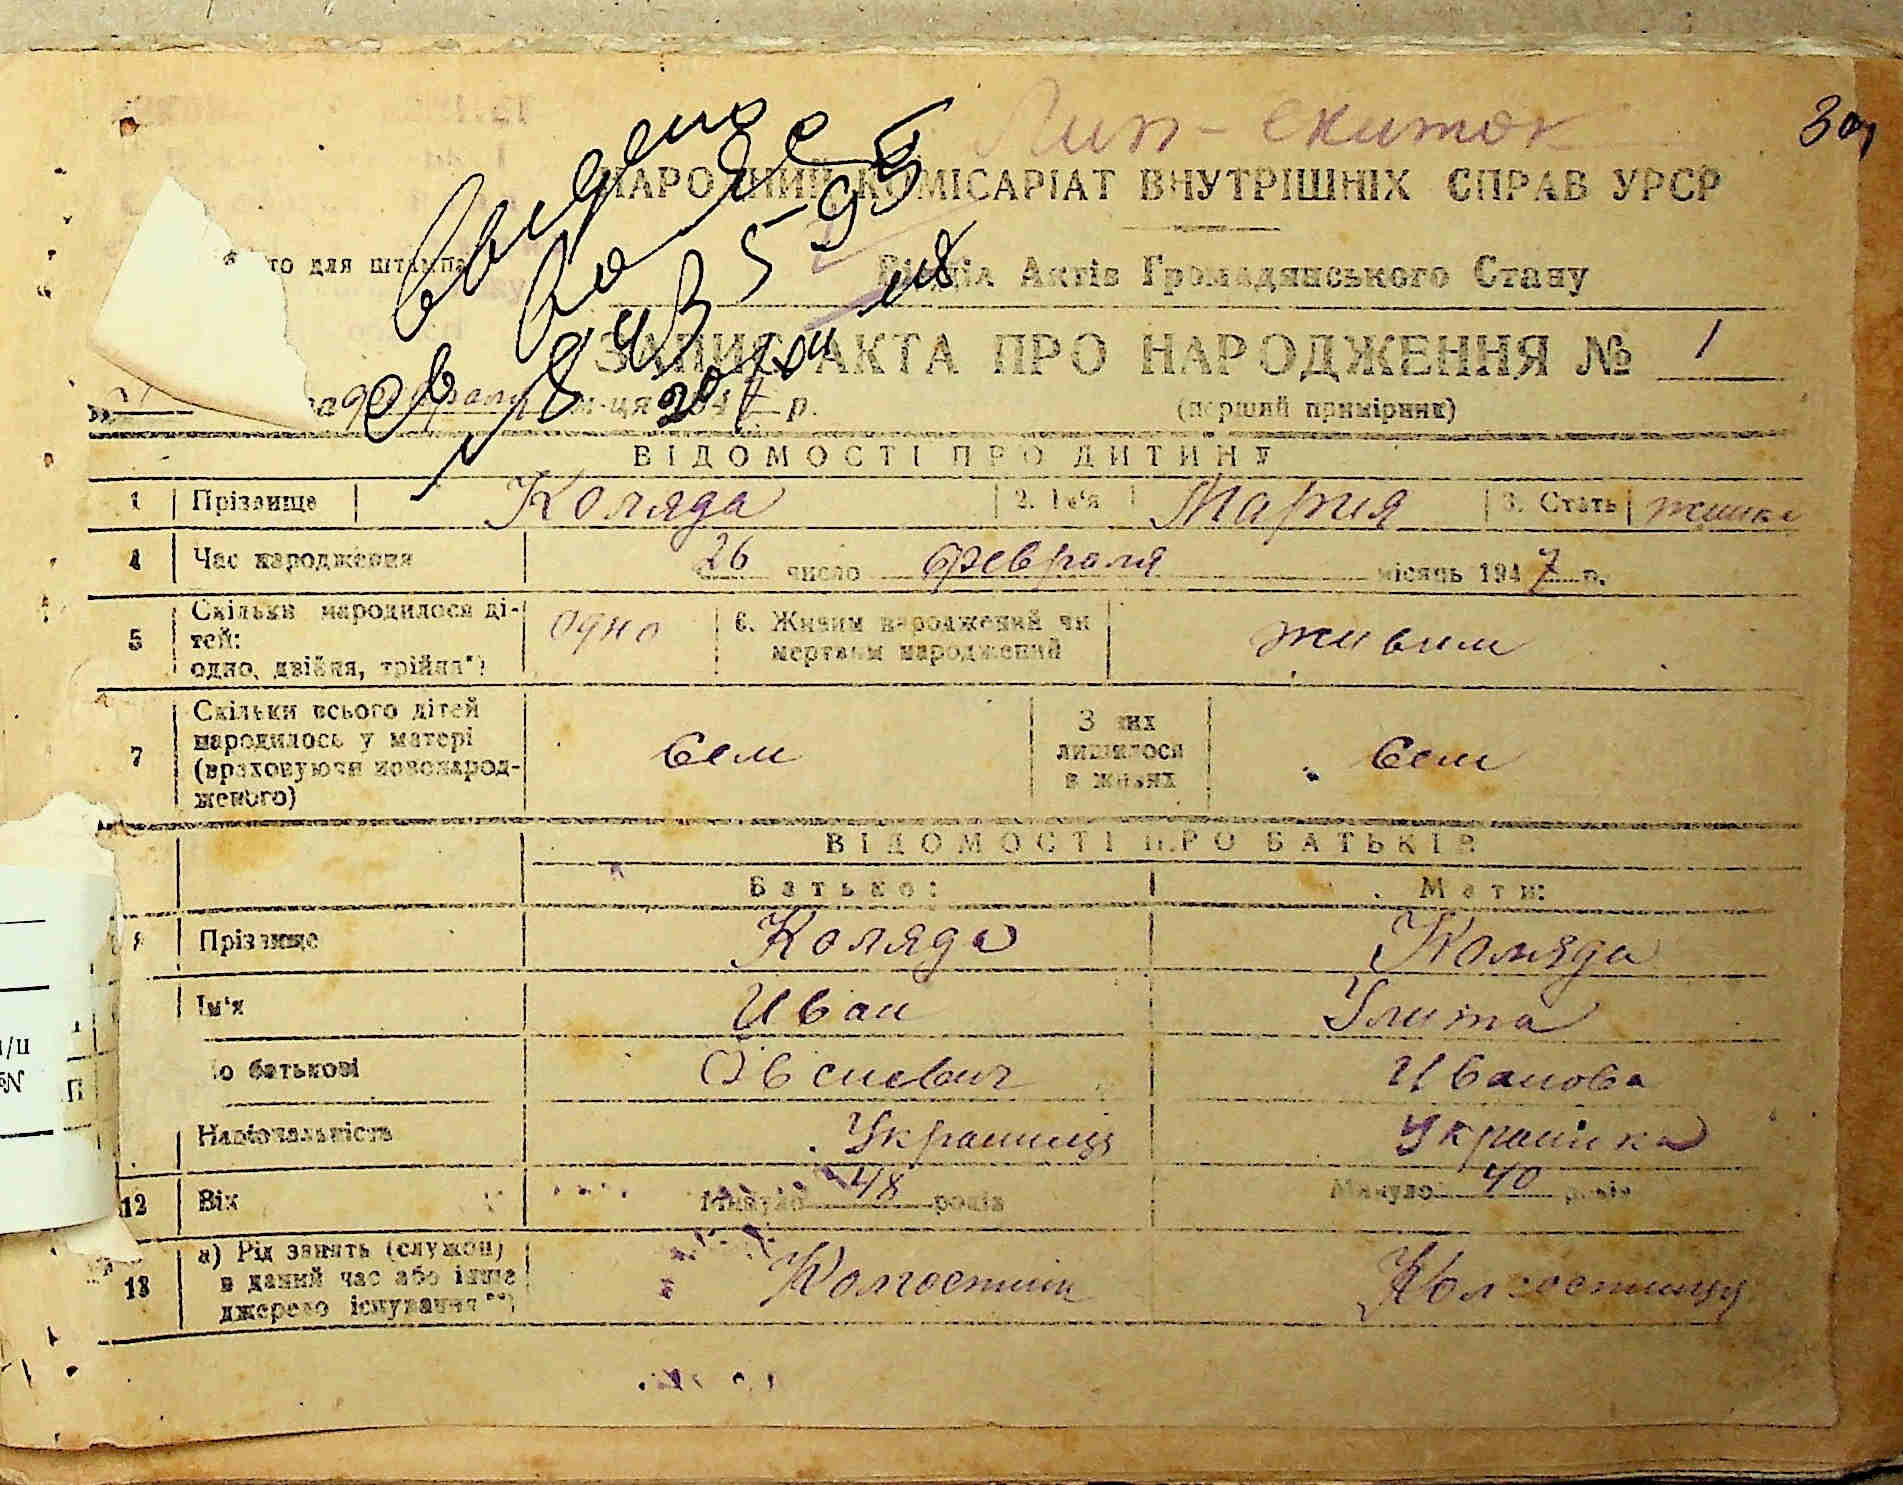 Лип-скиток
НАРОДНИЙ КОМІСАРІАТ ВНУТРІШНІХ СПРАВ УРСР
то для штампа
Відділ Актів Громадянського Стану
ЗАПИС АКТА ПРО НАРОДЖЕННЯ № 1
м-ця 1947 р.
(перший примірник)
ВІДОМОСТІ ПРО ДИТИНУ
1 Прізвище Коляда 2. Ім'я Мария 3. Стать
4 Час народження 26 число февраля місяць 1947 р.
5 Скільки народилося ді-
тей:
одно, двійня, трійня*)
одно
6. Живим народжений чи
мертвим народжений
живим
7 Скільки всього дітей
народилось у матері
(враховуючи новонарод-
женого)
сем
З них
лишилося
в живих
сем
ВІДОМОСТІ ПРО БАТЬКІВ
Батько: Мати:
8 Прізвище Коляда Коляда
Ім'я Иван Улита
о батькові Иванова
Національність Украинец Украинка
12 Вік Минуло 48 років Минуло 40 років
13 а) Рід занять (служби)
в даний час або інше
джерело існування**)
Колгоспник Колгоспниця